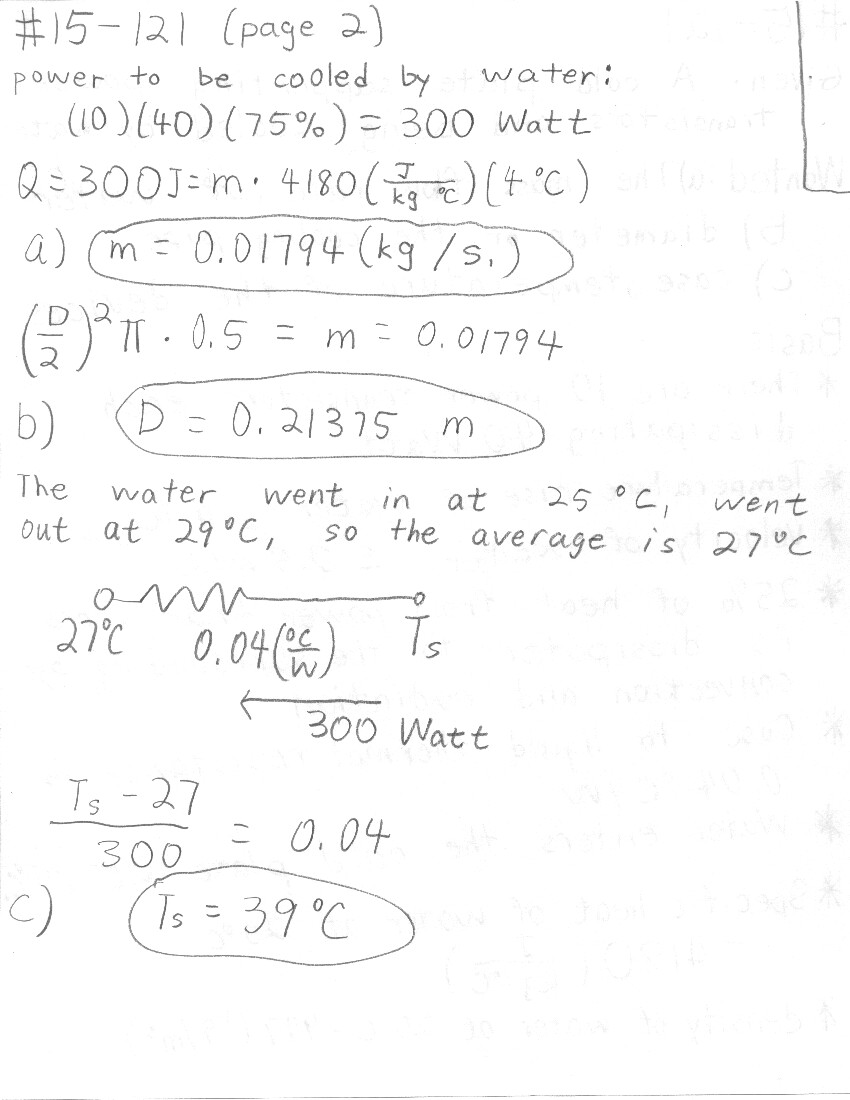 #15-121 (page 2)
power to be cooled by water:
(10)(40)(75%) = 300 Watt
Q = 300J = m · 4180 (J/kg °C)(4 °C)
a) m = 0.01794 (kg/s.)
(D/2)² π · 0.5 = m = 0.01794
b) D = 0.21375 m
The water went in at 25 °C, went
out at 29 °C, so the average is 27 °C
27°C 0.04 (°C/W) Ts
300 Watt
Ts - 27 / 300 = 0.04
c) Ts = 39 °C